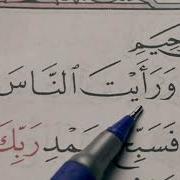 حِيمِ
وَرَأَيْتَ ٱلنَّاسَ
فَسَبِّحْ بِحَمْدِ رَبِّكَ